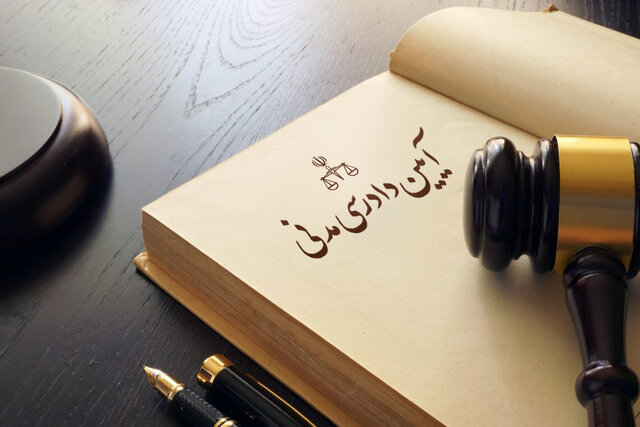 آیین دادرسی مدنی